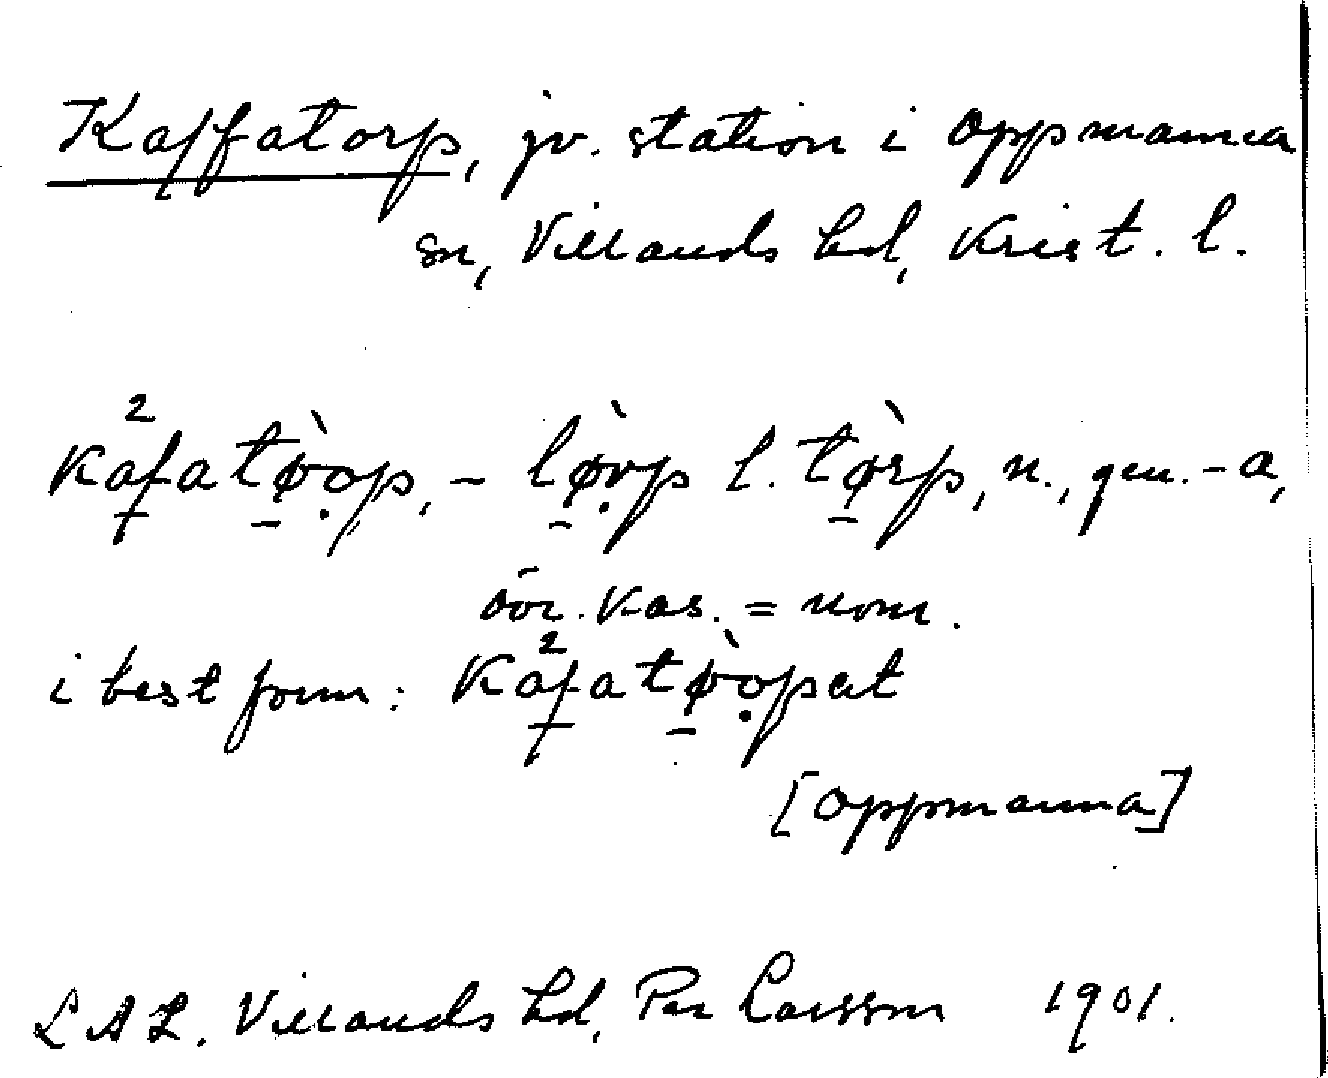 Kaffatorp, jv. station i Oppmanna
sn, Villands hd, Krist. l.
ka²fatø̀ǫp, - lø̀rp l. tø̀rp, n., gen. -a,
övr. kas. = nom.
i best form: ka²fatø̀ǫpat
[Oppmanna]
LAL. Villands hd, Per Larsson 1901.